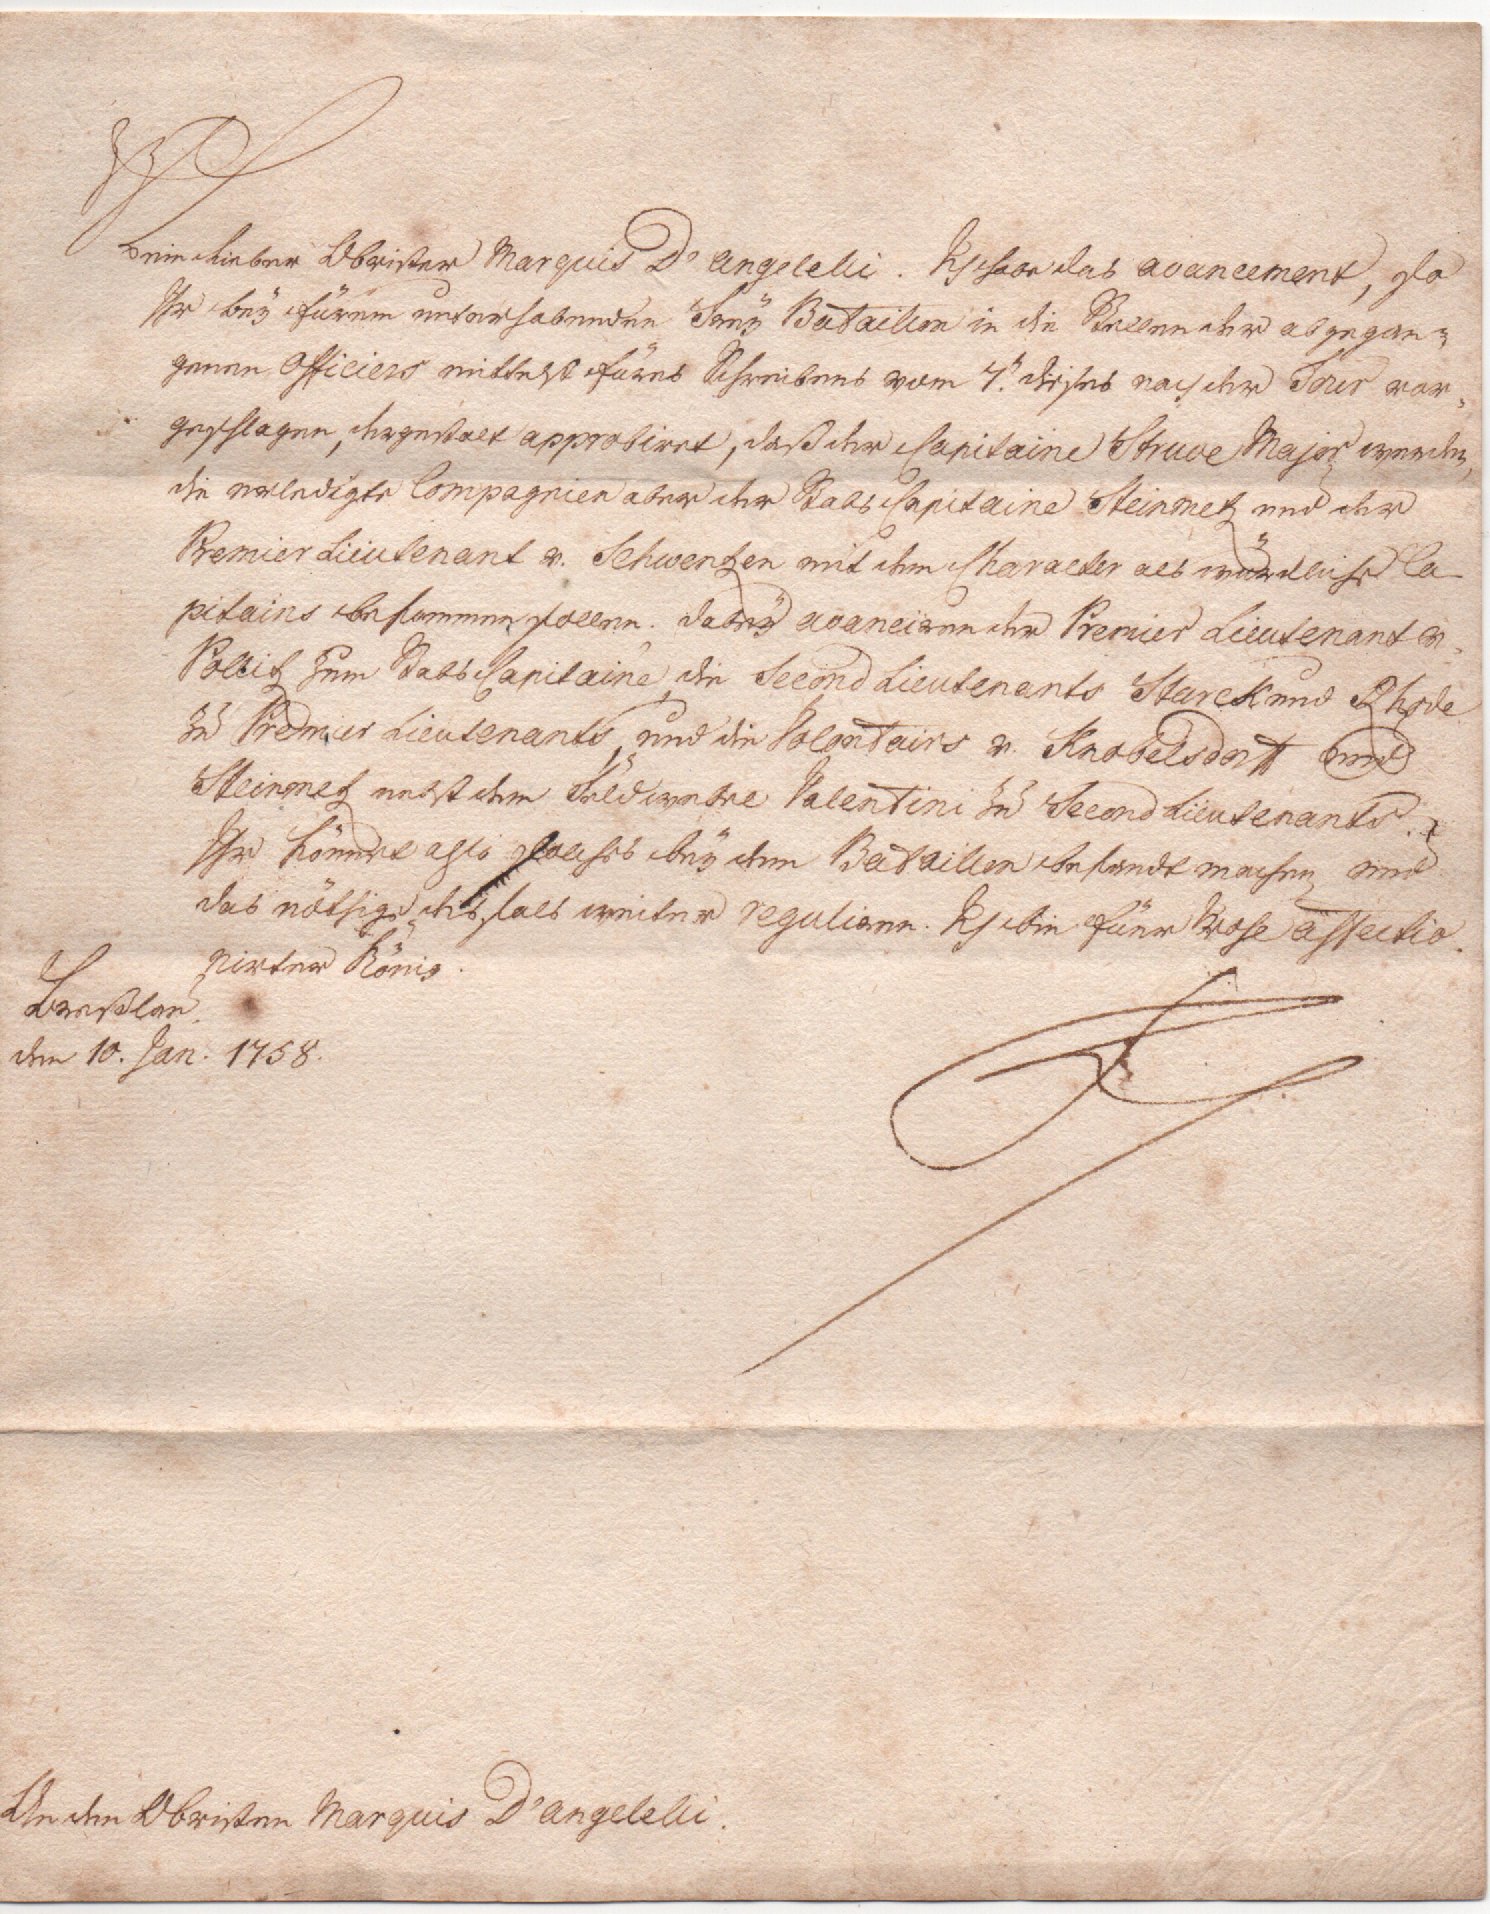 Mein lieber Obrister Marquis D'Angelelli. Ich habe das avancement, so
Ihr bey Eurem unterhabenden Frey Bataillon in die Stellen der abgegan-
genen Officiers mittelst Eures Schreibens vom 7t. dieses nach der Tour vor-
geschlagen, dergestalt approbiret, daß der Capitaine Struve Major werden,
die erledigte Compagnien aber der StabsCapitaine Steinmetz und der
Premier Lieutenant v. Schwentzen mit dem Character als würckliche Ca-
pitains bekommen sollen. Dabey avanciren der Premier Lieutenant v.
Pollitz zum StabsCapitaine, die Second Lieutenants Starck und Rhode
zu Premier Lieutenants, und die Volontairs v. Knobelsdorff und
Steinmetz nebst dem Feldwebel Valentini zu Second Lieutenants.
Ihr könnet also solches bey dem Bataillon bekandt machen und
das nöthige deshalb weiter reguliren. Ich bin Euer wohl affectio-
nirter König.
Breßlau,
den 10. Jan. 1758.
An den Obristen Marquis D'Angelelli.